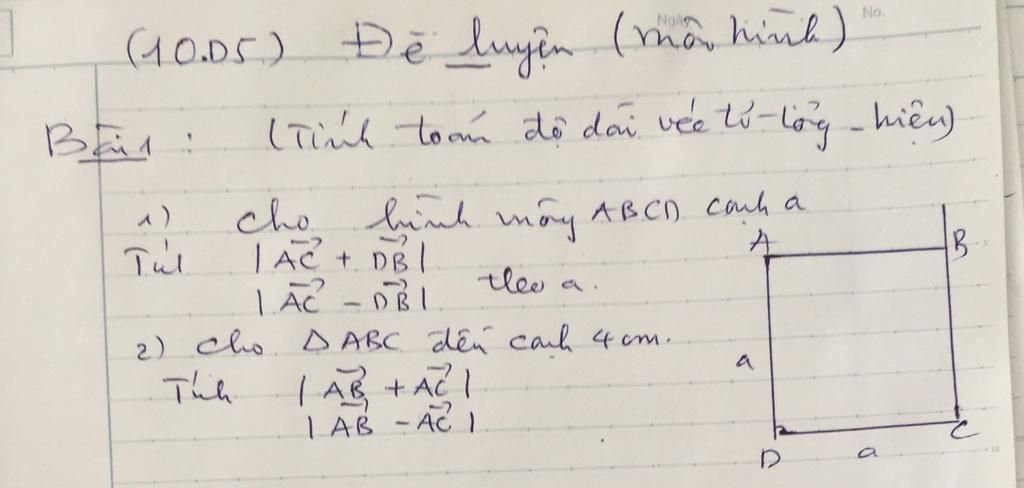 Ngày No.
(10.D5) Đề luyện (môn hình)
Bài 1: (Tính toán độ dài véc tơ - tổng - hiệu)
1) Cho hình vuông ABCD cạnh a
Tính |AC + DB|
|AC - DB| theo a.
2) Cho Δ ABC đều cạnh 4 cm.
Tính |AB + AC|
|AB - AC|
A B
a
D a C